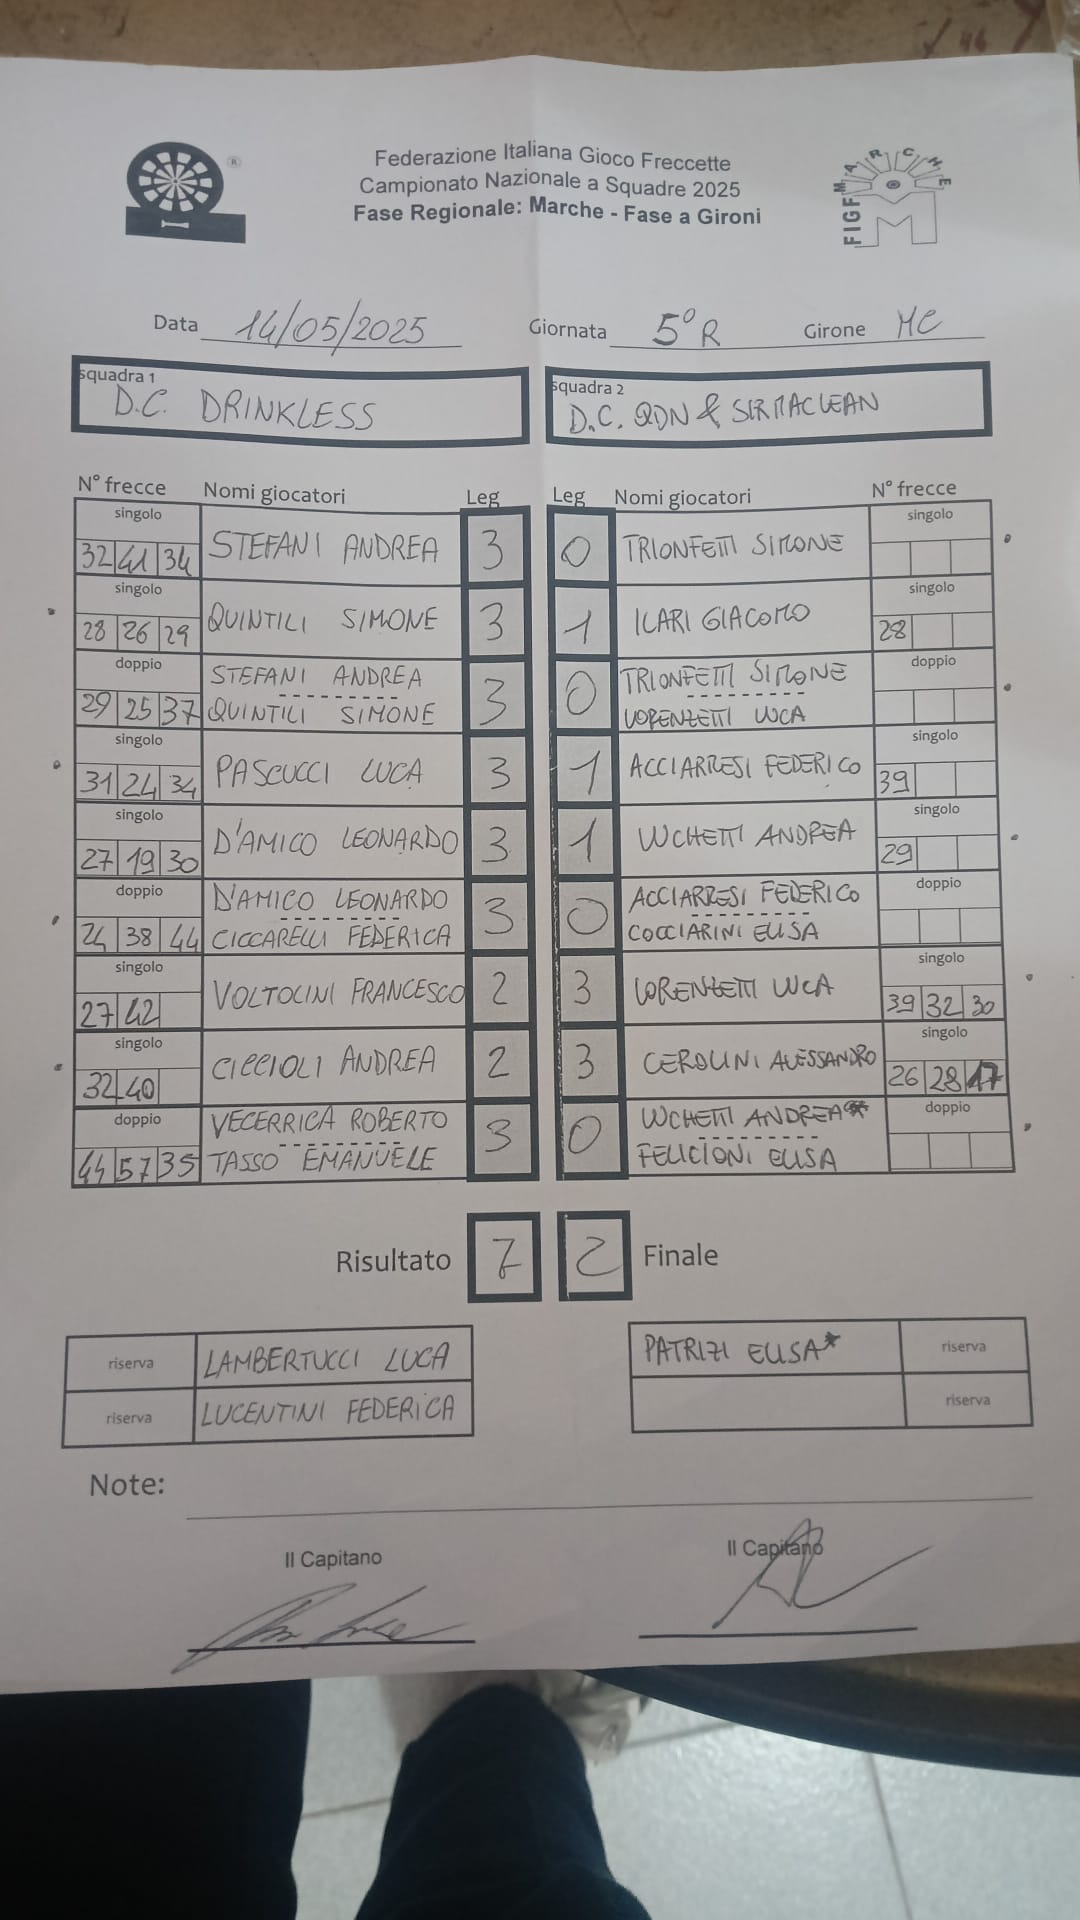 Federazione Italiana Gioco Freccette
Campionato Nazionale a Squadre 2025
Fase Regionale: Marche - Fase a Gironi
®
FIGF MARCHE
Data 14/05/2025 Giornata 5° R Girone MC
squadra 1
D.C. DRINKLESS
squadra 2
D.C. QDN & SIRMACLEAN
N° frecce Nomi giocatori Leg Leg Nomi giocatori N° frecce
singolo singolo
32 41 34 STEFANI ANDREA 3 0 TRIONFETTI SIMONE
singolo singolo
28 26 29 QUINTILI SIMONE 3 1 ILARI GIACOMO 28
doppio STEFANI ANDREA TRIONFETTI SIMONE doppio
29 25 37 QUINTILI SIMONE 3 0 LORENZETTI LUCA
singolo singolo
31 24 34 PASCUCCI LUCA 3 1 ACCIARRESI FEDERICO 39
singolo singolo
27 19 30 D'AMICO LEONARDO 3 1 LUCHETTI ANDREA 29
doppio D'AMICO LEONARDO ACCIARRESI FEDERICO doppio
24 38 44 CICCARELLI FEDERICA 3 0 COCCIARINI ELISA
singolo singolo
27 42 VOLTOLINI FRANCESCO 2 3 LORENZETTI LUCA 39 32 30
singolo singolo
32 40 CICCIOLI ANDREA 2 3 CEROLINI ALESSANDRO 26 28 17
doppio VECERRICA ROBERTO LUCHETTI ANDREA* doppio
44 57 35 TASSO EMANUELE 3 0 FELICIONI ELISA
Risultato 7 2 Finale
riserva LAMBERTUCCI LUCA PATRIZI ELISA* riserva
riserva LUCENTINI FEDERICA riserva
Note:
Il Capitano Il Capitano